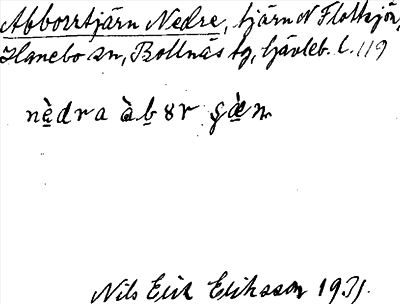 Abborrtjärn Nedre, tjärn N Flotsjön,
Hanebo sn, Bollnäs tg, Gävleb. l. 119
nèdra àbȣr
Nils Erik Eriksson 1931.